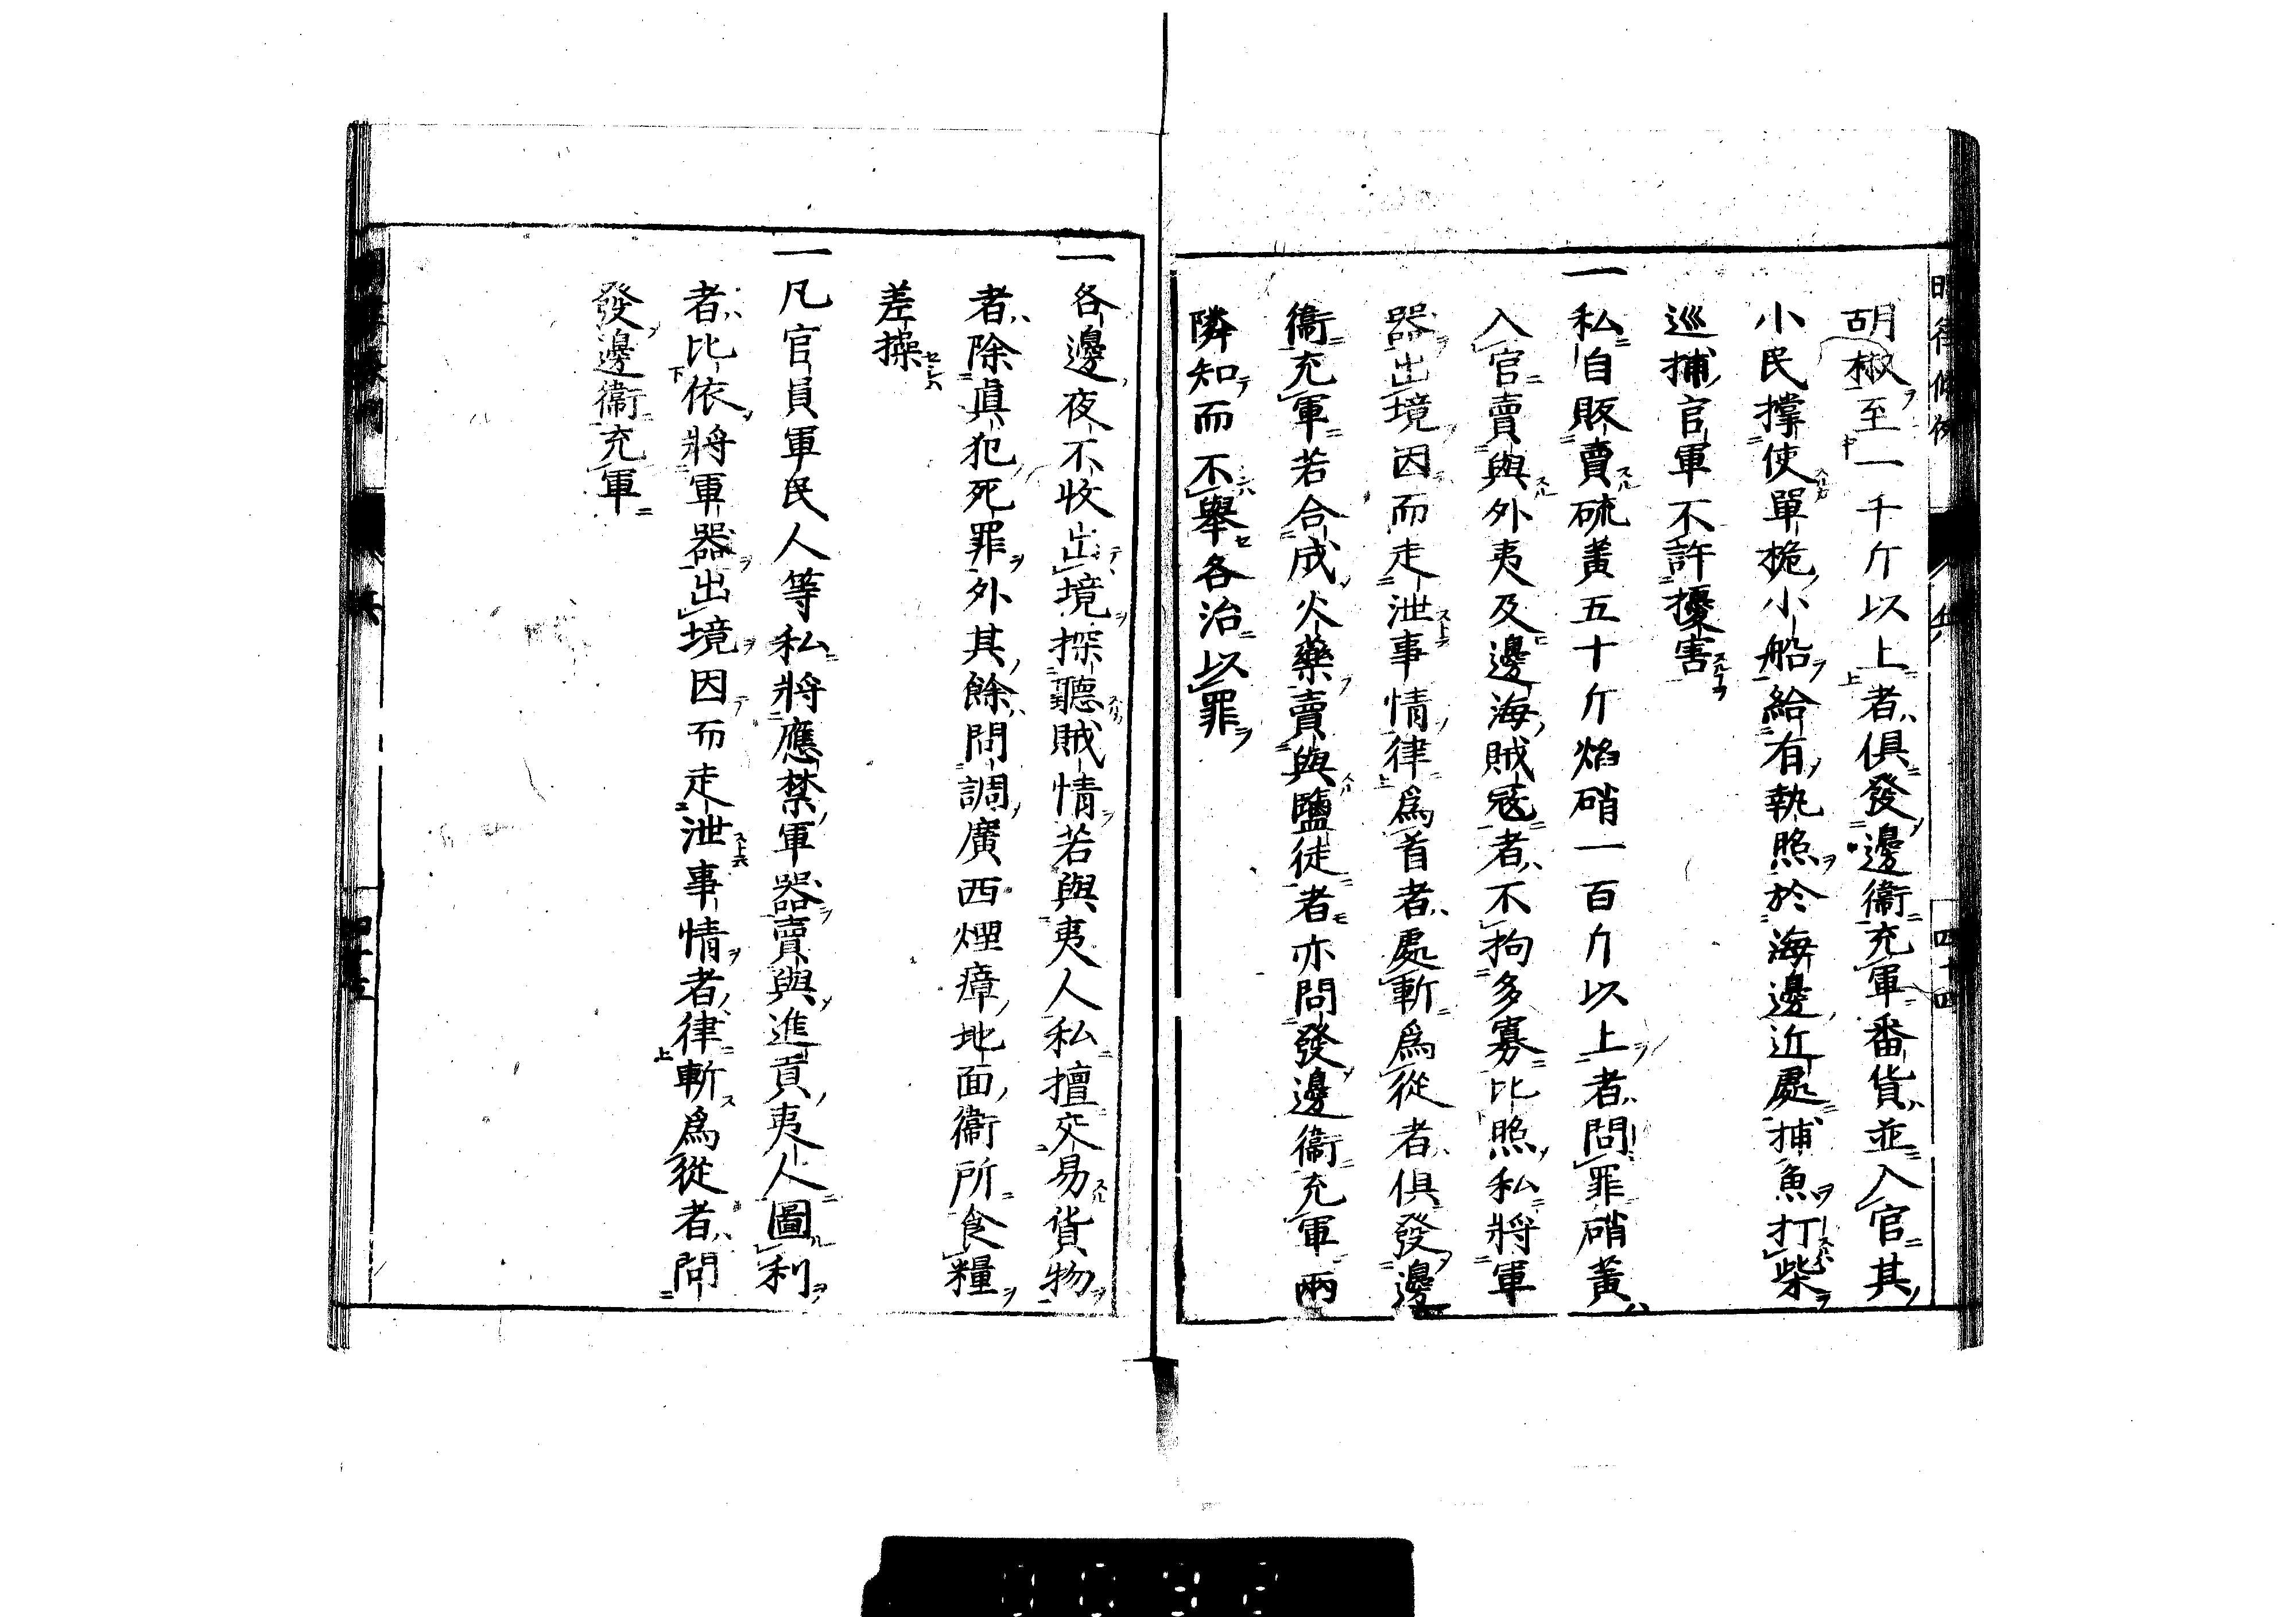 胡椒至一千斤以上者俱發邊衞充軍番貨並入官其
小民撐使單桅小船給有執照於海邊近處捕魚打柴
巡捕官軍不許擾害
一私自販賣硫黃五十斤焰硝一百斤以上者問罪硝黃
入官賣與外夷及邊海賊寇者不拘多寡比照私將軍
器出境因而走泄事情律爲首者處斬爲從者俱發邊
衞充軍若合成火藥賣與鹽徒者亦問發邊衞充軍兩
隣知而不舉各治以罪
一各邊夜不收出境探聽賊情若與夷人私擅交易貨物
者除眞犯死罪外其餘問調廣西煙瘴地面衞所食糧
差操
一凡官員軍民人等私將應禁軍器賣與進貢夷人圖利
者比依將軍器出境因而走泄事情者律斬爲從者問
發邊衞充軍